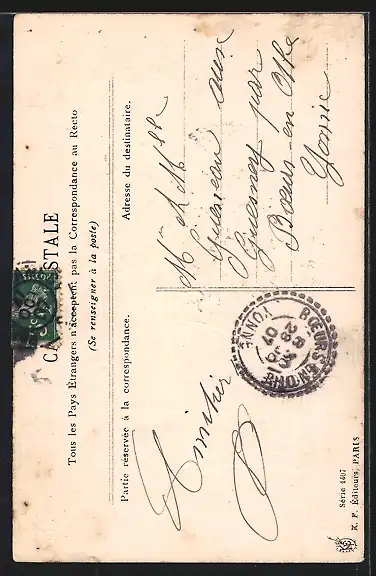 CARTE POSTALE
Tous les Pays Étrangers n'acceptent pas la Correspondance au Recto
(Se renseigner à la poste)
Partie réservée à la correspondance.
Adresse du destinataire.
Amitiés
Mr et Melle
aux
par
Bœurs-en-Othe
Yonne
BŒURS-EN-OTHE
YONNE
07
Série 4407
K. F. Éditeurs, PARIS